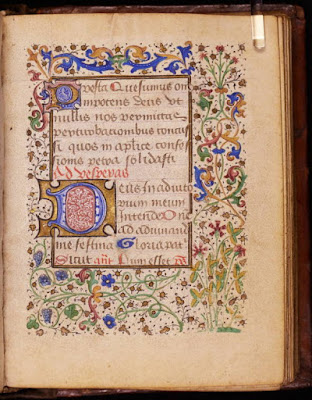 Presta Quesumus om
nipotens deus Vt
nullis nos permittas
perturbationibus concu
ti quos in aplice confes
sionis petra solidasti
Ad Vesperas
Deus In adiuto
rium meum
Intende Dne
ad adiuvand
me festina Gloria pat
Sicut añt Cum esset